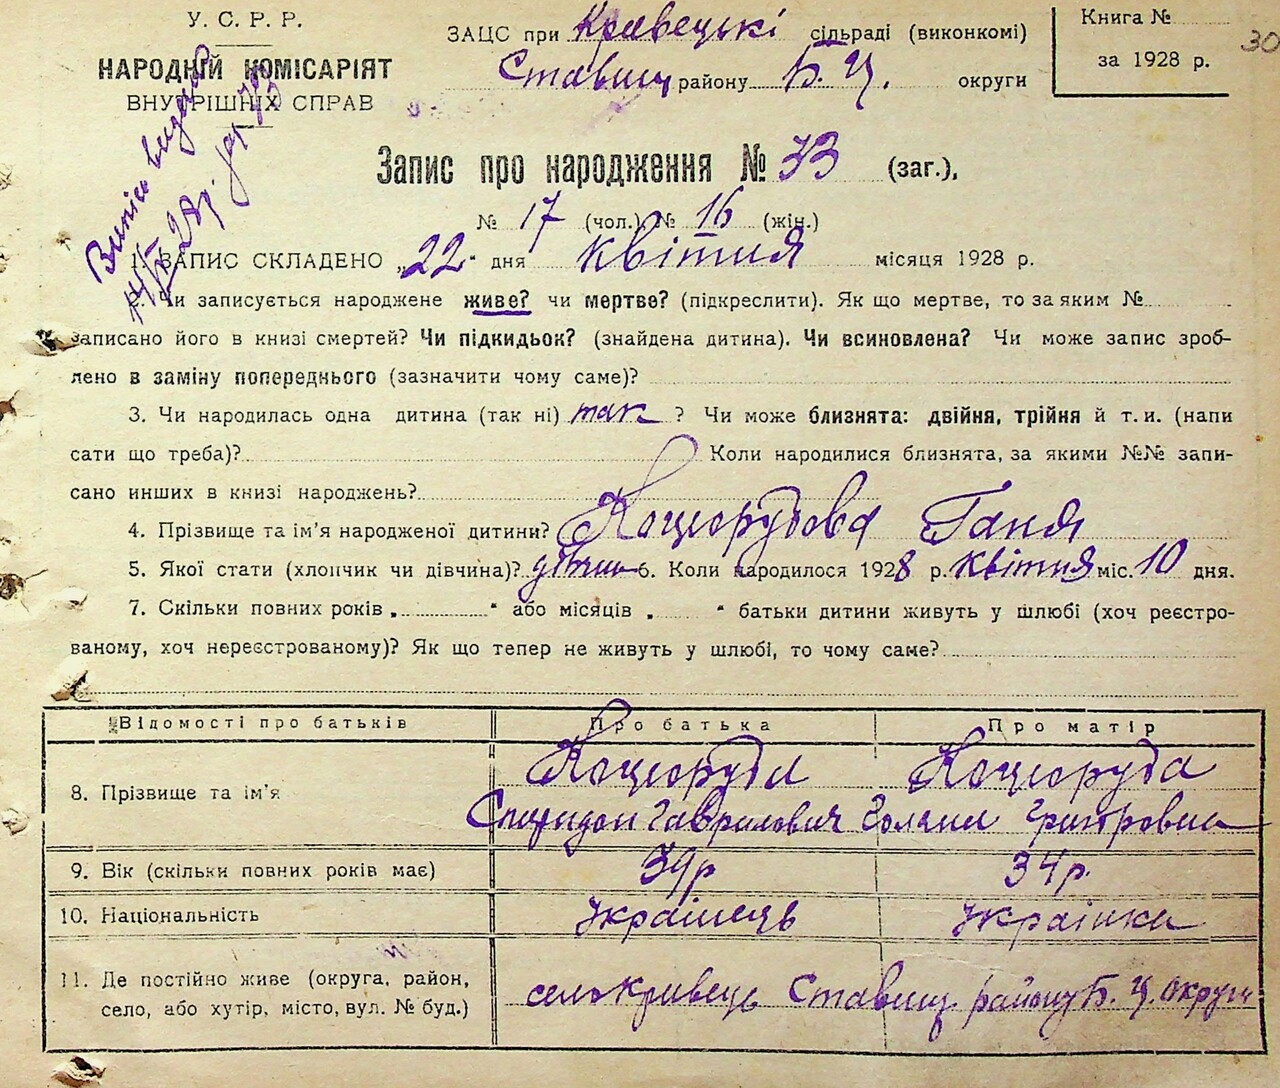 У. С. Р. Р.
НАРОДНІЙ КОМІСАРІЯТ
ВНУТРІШНІХ СПРАВ
ЗАЦС при Кривецькі сільраді (виконкомі)
Ставищ району Б. Ц. округи
Книга №
за 1928 р.
30
Випис видано
Запис про народження № 33 (заг.),
№ 17 (чол.) № 16 (жін.)
1. ЗАПИС СКЛАДЕНО „22" дня квітня місяця 1928 р.
2. Чи записується народжене живе? чи мертве? (підкреслити). Як що мертве, то за яким №
записано його в книзі смертей? Чи підкидьок? (знайдена дитина). Чи всиновлена? Чи може запис зроб-
лено в заміну попереднього (зазначити чому саме)?
3. Чи народилась одна дитина (так ні) так ? Чи може близнята: двійня, трійня й т. и. (напи
сати що треба)? Коли народилися близнята, за якими №№ запи-
сано инших в книзі народжень?
4. Прізвище та ім'я народженої дитини? Коцюрудова Ганя
5. Якої стати (хлопчик чи дівчина)? дівчин 6. Коли народилося 1928 р. квітня міс. 10 дня.
7. Скільки повних років „ " або місяців „ " батьки дитини живуть у шлюбі (хоч реєстро-
ваному, хоч нереєстрованому)? Як що тепер не живуть у шлюбі, то чому саме?
Відомості про батьків Про батька Про матір
8. Прізвище та ім'я Коцюруба Коцюруба
Спиридон Гаврилович Григоровна
9. Вік (скільки повних років має) 39р 34р.
10. Національність Українець Українка
11. Де постійно живе (округа, район,
село, або хутір, місто, вул. № буд.) село Кривець Ставищ району Б. Ц. округи